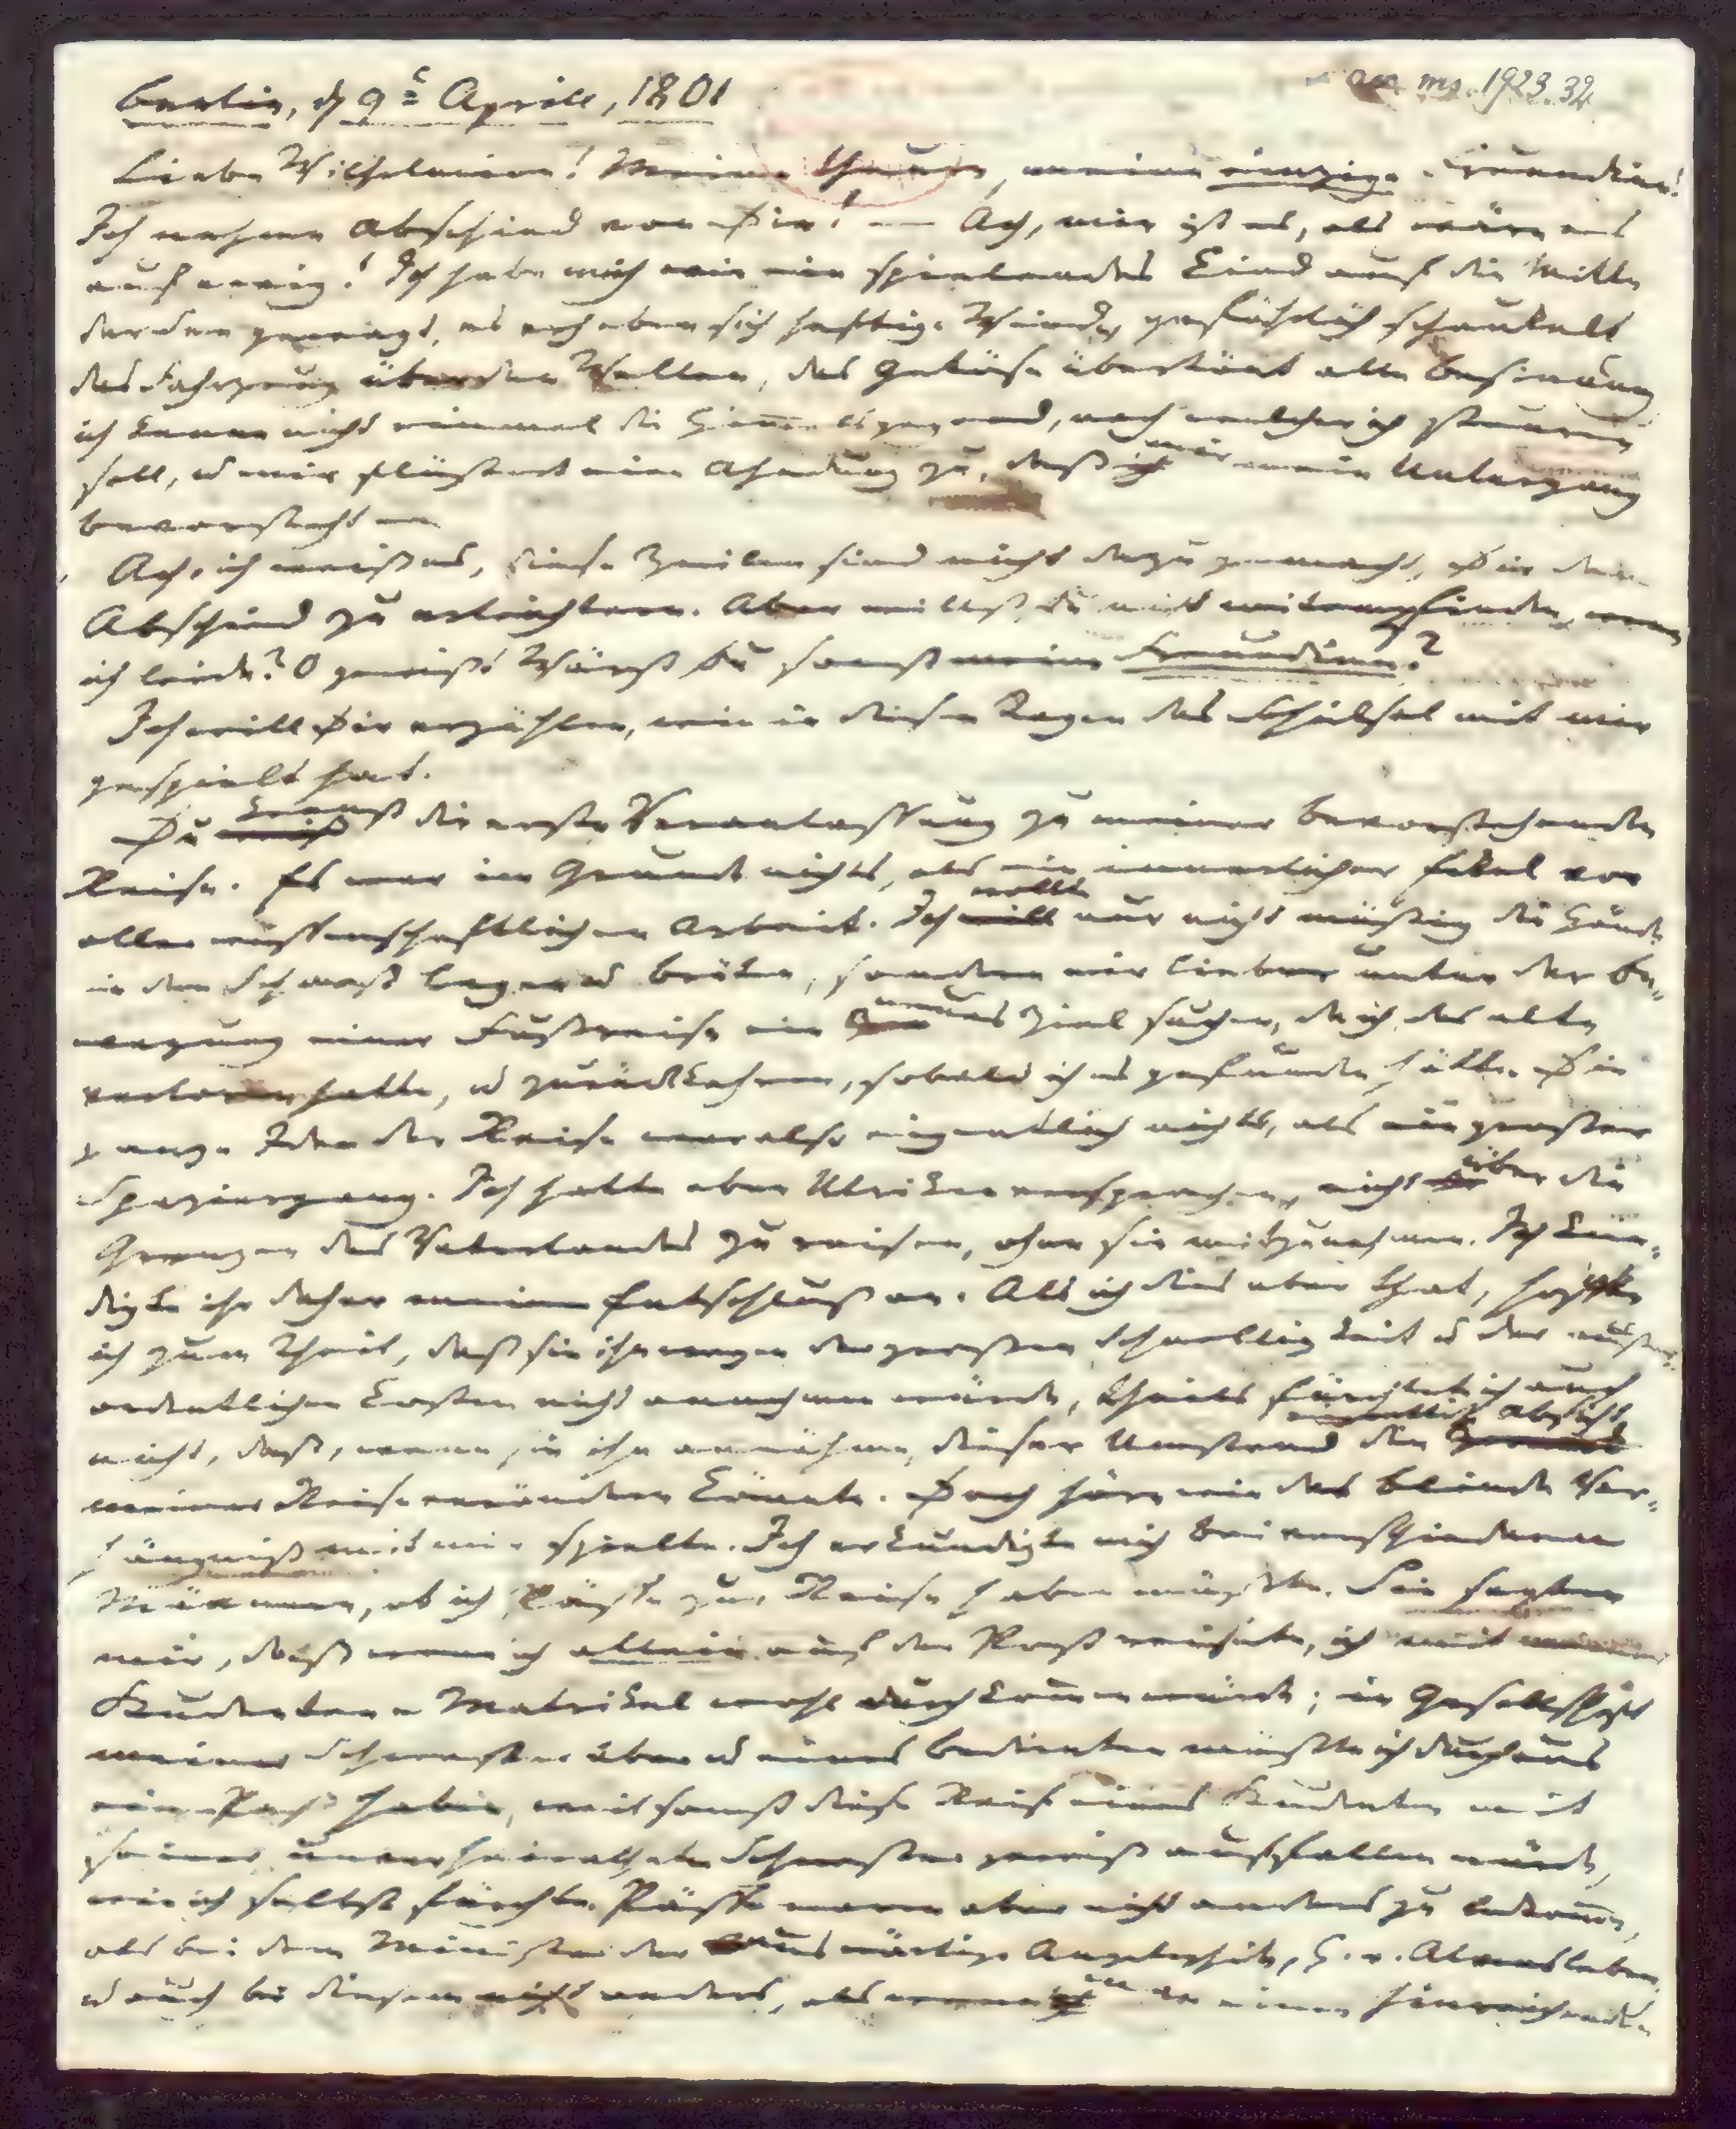 Berlin, d 9t April, 1801
acc ms. 1923.32
Liebe Wilhelmine! Meine theure, meine einzige Freundinn!
Ich nehme Abschied von Dir! — Ach, mir ist es, als wäre es
auf ewig! Ich habe mich wie ein spielendes Kind auf die Mitte
der See gewagt, es erheben sich heftige Winde, gefährlich schaukelt
das Fahrzeug über den Wellen, das Getöse übertönt alle Besinnung
ich kenne nicht einmal die Himmelsgegend, nach welcher ich steuern
soll, u mir flüstert eine Ahndung zu, daß mir mein Untergang
bevorsteht —
Ach, ich weiß es, diese Zeilen sind nicht dazu gemacht, Dir den
Abschied zu erleichtern. Aber willst Du nicht mitempfinden, wenn
ich leide? O gewiß! Wärst Du sonst meine Freundinn?
Ich will Dir erzählen, wie in diesen Tagen das Schicksal mit mir
gespielt hat.
Du kennst die erste Veranlassung zu meiner bevorstehenden
Reise. Es war im Grunde nichts, als ein innerlicher Ekel vor
aller wissenschaftlichen Arbeit. Ich wollte nur nicht müssig die Hände
in den Schooß legen u brüten, sondern mir lieber unter der Be-
wegung einer Fußreise ein neues Ziel suchen, da ich das alte
verloren hatte, u zurückkehren, sobald ich es gefunden hätte. Die
ganze Idee der Reise war also eigentlich nichts, als ein großer
Spaziergang. Ich hatte aber Ulriken versprochen, nicht über die
Grenzen des Vaterlandes zu reisen, ohne sie mitzunehmen. Ich kün-
digte ihr daher meinen Entschluß an. Als ich dies aber that, hoffte
ich zum Theil, daß sie ihn wegen der großen Schnelligkeit u der außer-
ordentlichen Kosten nicht annehmen würde, theils fürchtete ich auch
nicht, daß, wenn sie ihn annähme, dieser Umstand die eigentliche Absicht
meiner Reise verändern könnte. Doch höre wie das blinde Ver-
hängniß mit mir spielte. Ich erkundigte mich bei verschiedenen
Männern, ob ich Pässe zur Reise haben müßte. Sie sagten
mir, daß wenn ich allein auf der Post reisete, ich mit meiner
Studenten-Matrikel wohl durchkommen würde; in Gesellschaft
meiner Schwester aber u eines Bedienten müßte ich durchaus
einen Paß haben, weil sonst diese Reise eines Studenten mit
seiner unverheiratheten Schwester gewiß auffallen würde,
wie ich selbst fürchte. Pässe waren aber nicht anders zu bekommen,
als bei dem Minister der auswärtigen Angelegenheiten, H. v. Alvensleben,
u auch bei diesem nicht anders, als wenn man einen hinreichenden